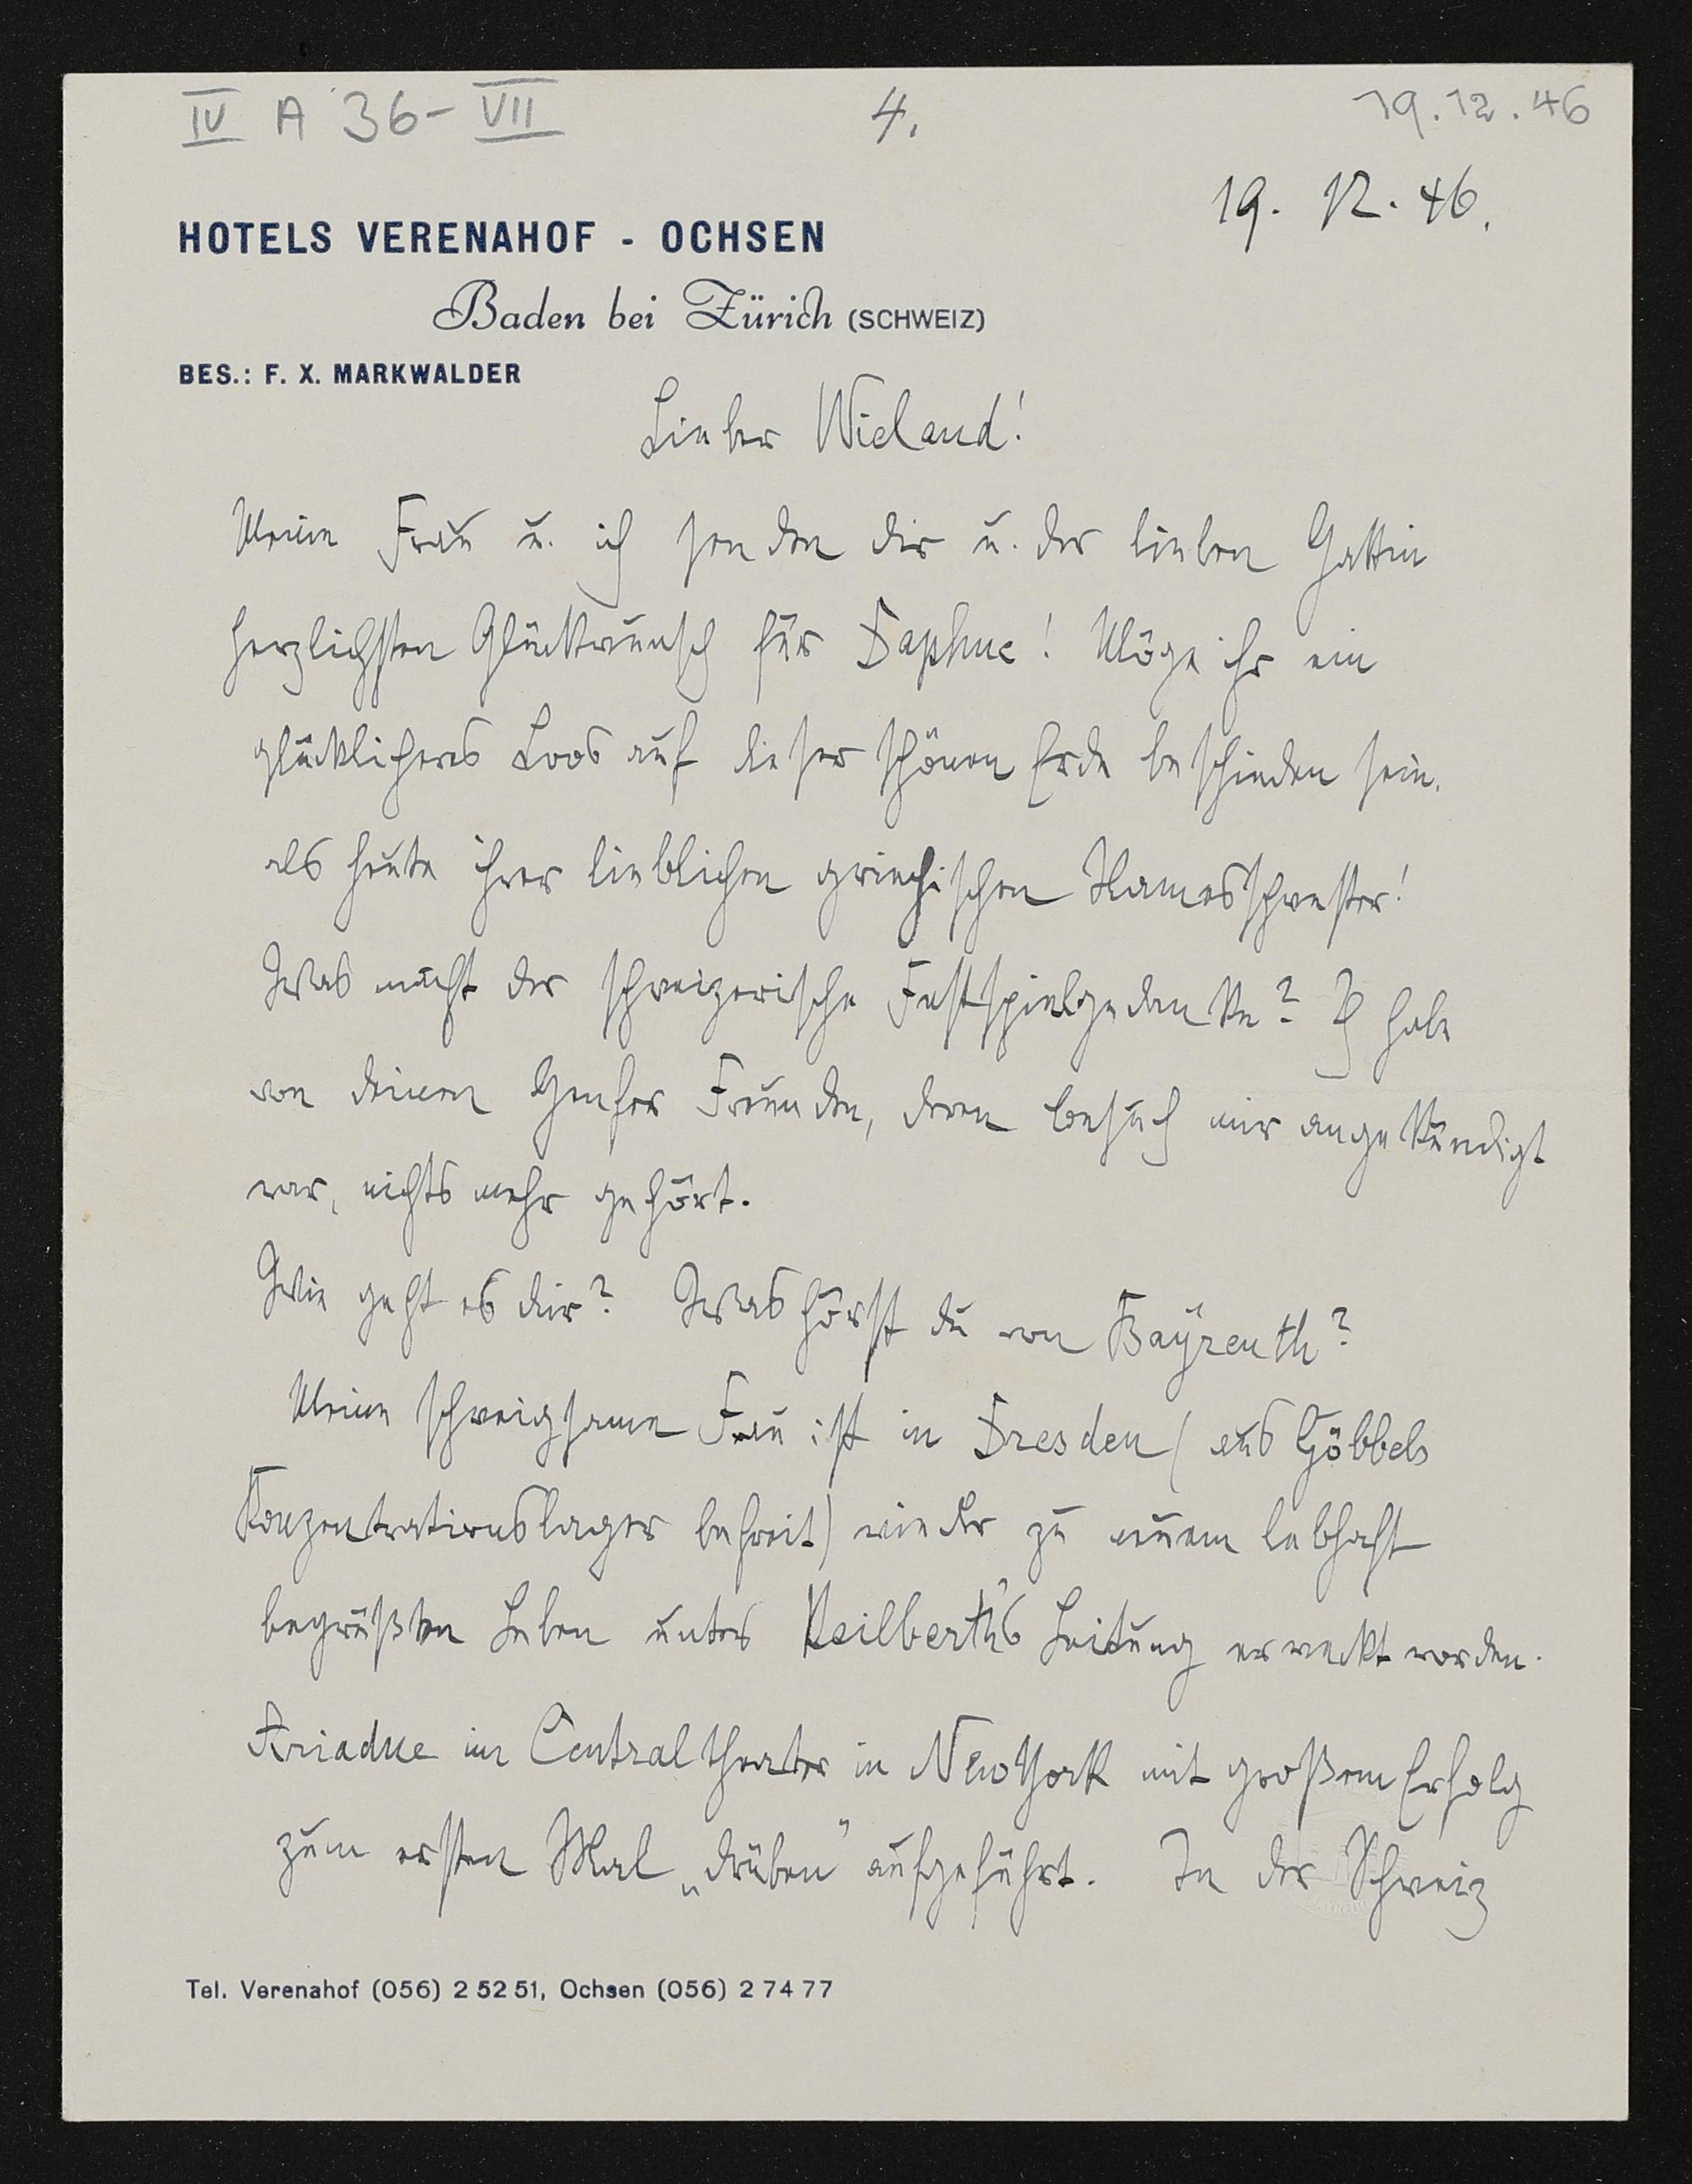 IV A 36-VII 4. 19.12.46
19. 12. 46.
HOTELS VERENAHOF - OCHSEN
Baden bei Zürich (SCHWEIZ)
BES.: F. X. MARKWALDER
Lieber Wieland!
Meine Frau u. ich senden dir u. der lieben Gattin
herzlichsten Glückwunsch für Daphne! Möge ihr ein
glücklicheres Loos auf dieser schönen Erde beschieden sein,
als heute ihrer lieblichen griechischen Namesschwester!
Was macht der schweizerische Festspielgedanke? Ich habe
von deinen Genfer Freunden, deren Besuch mir angekündigt
war, nichts mehr gehört.
Wie geht es dir? Was hörst du von Bayreuth?
Meine schweigsame Frau ist in Dresden (aus Göbbels
Konzentrationslager befreit) wieder zu neuem lebhaft
begrüßten Leben unter Keilberth's Leitung erweckt worden.
Ariadne im Centraltheater in NewYork mit großem Erfolg
zum ersten Mal „drüben" aufgeführt. In der Schweiz
Tel. Verenahof (056) 2 52 51, Ochsen (056) 2 74 77